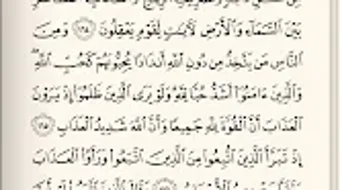 بَيْنَ ٱلسَّمَآءِ وَٱلْأَرْضِ لَـَٔايَـٰتٍ لِّقَوْمٍ يَعْقِلُونَ ١٦٤ وَمِنَ
ٱلنَّاسِ مَن يَتَّخِذُ مِن دُونِ ٱللَّهِ أَندَادًا يُحِبُّونَهُمْ كَحُبِّ ٱللَّهِ ۖ
وَٱلَّذِينَ ءَامَنُوٓا۟ أَشَدُّ حُبًّا لِّلَّهِ ۗ وَلَوْ يَرَى ٱلَّذِينَ ظَلَمُوٓا۟ إِذْ يَرَوْنَ
ٱلْعَذَابَ أَنَّ ٱلْقُوَّةَ لِلَّهِ جَمِيعًا وَأَنَّ ٱللَّهَ شَدِيدُ ٱلْعَذَابِ ١٦٥
إِذْ تَبَرَّأَ ٱلَّذِينَ ٱتُّبِعُوا۟ مِنَ ٱلَّذِينَ ٱتَّبَعُوا۟ وَرَأَوُا۟ ٱلْعَذَابَ